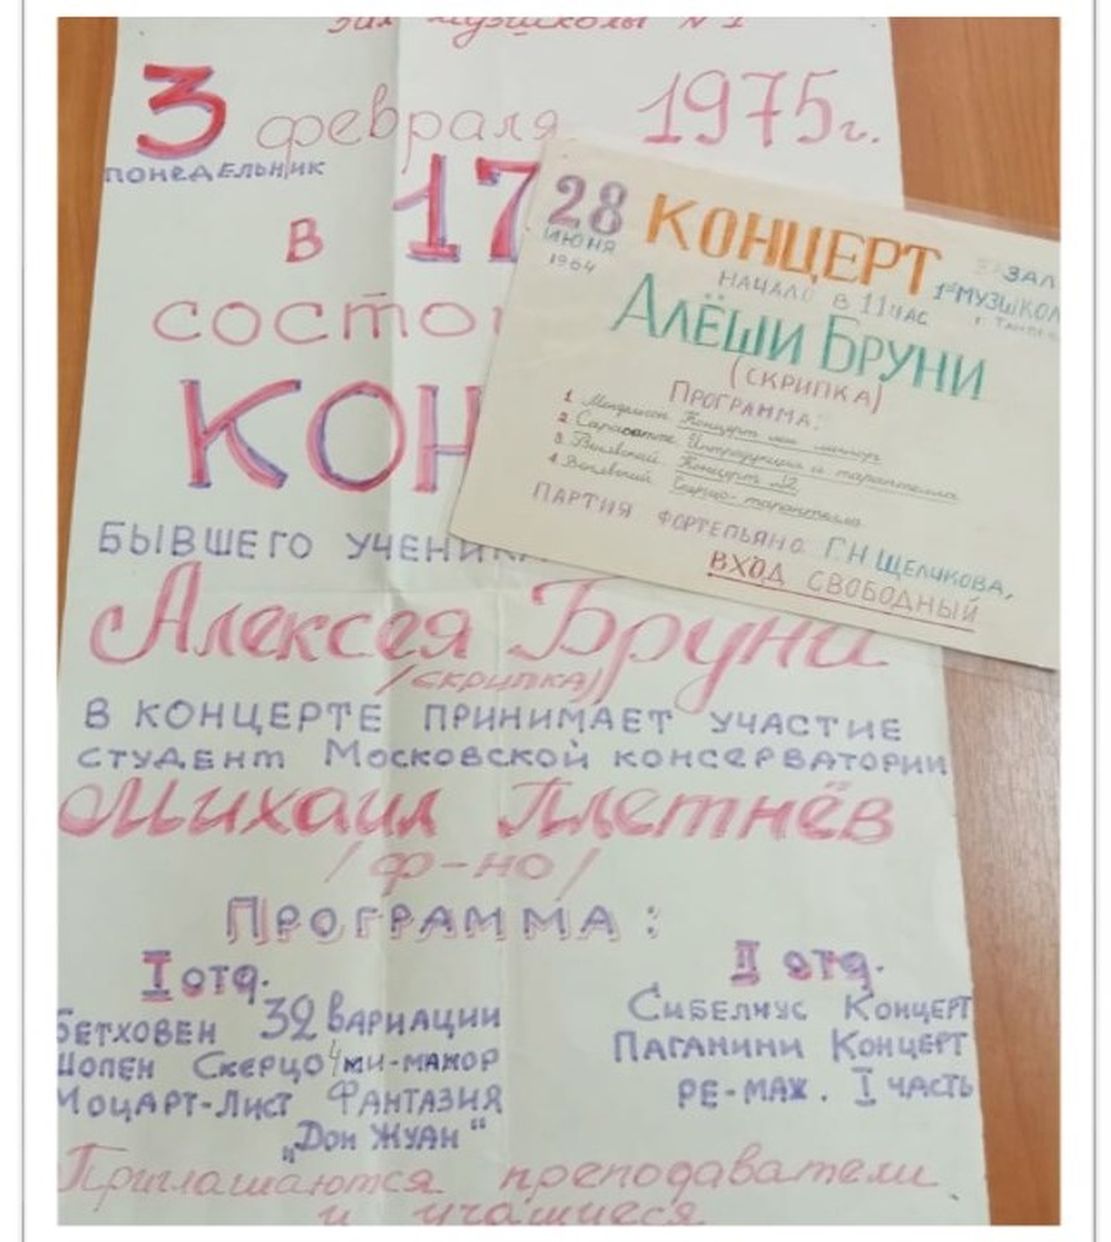 Зал музшколы № 1
3 февраля 1975г.
понедельник
в 17
состо
КОН
БЫВШЕГО УЧЕНИКА
Алексея Бруни
/скрипка/
В КОНЦЕРТЕ ПРИНИМАЕТ УЧАСТИЕ
СТУДЕНТ МОСКОВСКОЙ КОНСЕРВАТОРИИ
Михаил Плетнёв
/ф-но/
ПРОГРАММА:
I отд.
БЕТХОВЕН 32 ВАРИАЦИИ
ШОПЕН СКЕРЦО 4 МИ-МАЖОР
МОЦАРТ-ЛИСТ ФАНТАЗИЯ
„ДОН ЖУАН“
II отд.
СИБЕЛИУС КОНЦЕРТ
ПАГАНИНИ КОНЦЕРТ
РЕ-МАЖ. I ЧАСТЬ
Приглашаются преподаватели
и учащиеся
28 ИЮНЯ 1964
КОНЦЕРТ
ЗАЛ
1ой МУЗШКОЛ
НАЧАЛО В 11 ЧАС
АЛЁШИ БРУНИ
(СКРИПКА)
ПРОГРАММА:
1 Мендельсон Концерт ми минор
2 Сарасатте Интродукция и тарантелла
3 Венявский Концерт №2
4 Венявский Скерцо-тарантелла
ПАРТИЯ ФОРТЕПЬЯНО Г.Н ЩЕЛИКОВА,
ВХОД СВОБОДНЫЙ